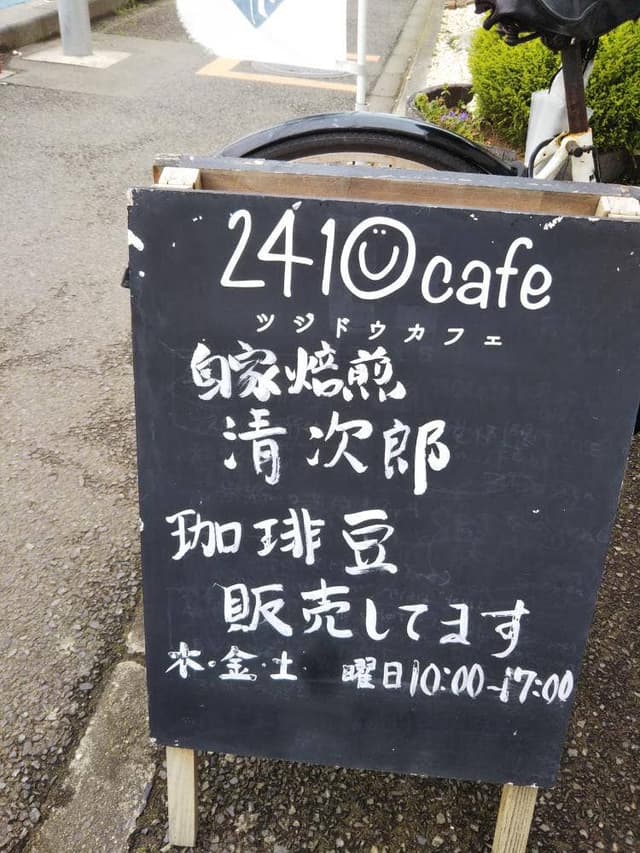 2410cafe
ツジドウカフェ
自家焙煎
清次郎
珈琲豆
販売してます
木・金・土 曜日10:00-17:00